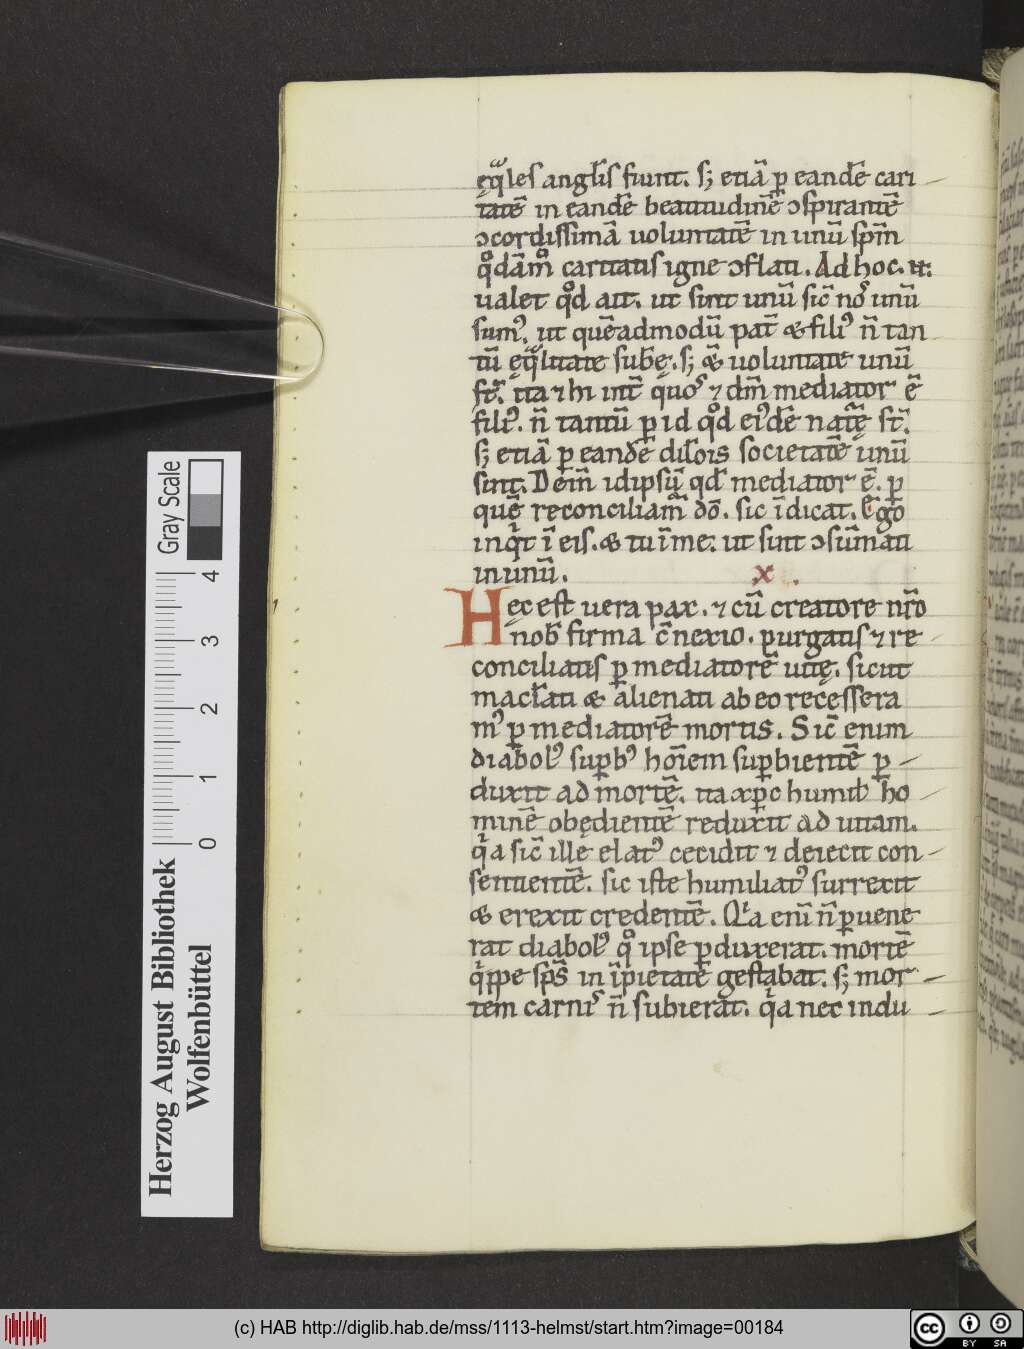 ęqͣles angłis fiunt. s; etiā ꝑ eandē cari
tatē in eandē beatitudinē ɔspirantē
ɔcordissimā uoluntatē in unū spm̄
qͦdāmͦ caritatis igne ɔflati. Ad hoc. n̄.
ualet qͦd ait. ut sint unū sic̄ noˢ unū
sumꝰ. ut quēadmodū pat̄ & filiꝰ n̄ tan
tū ęqͣlitate subē. s; & uoluntate unū
st̄. ita ⁊ hi int̄ quoˢ ⁊ dm̄ mediator ē
filiꝰ. n̄ tantū ꝑ id qͦd eiꝰdē natę st̄.
s; etiā ꝑ eandē dil̄ois societatē unū
sint. Dem̄ idipsū qd̄ mediator ē. ꝑ
quē reconciliam̄ dō. sic īdicat. Ego
inqͥt ī eis. & tu ī me. ut sint ɔsūmati
in unū. x .
Hec est uera pax. ⁊ cū creatore nr̄o
nob̄ firma c̄nexio. purgatis ⁊ re
conciliatis ꝑ mediatorē uitę. sicut
macl̄ati & alienati ab eo recessera
mꝰ ꝑ mediatorē mortis. Sic̄ enim
diabolꝰ suꝑbꝰ hoīem suꝑbientē ꝑ
duxit ad mortē. ita xp̄c humił ho
minē obędientē reduxit ad uitam.
qͥa sic̄ ille elatꝰ cecidit ⁊ deiecit con
sentientē. sic iste humiliatꝰ surrexit
& erexit credentē. Qͥa enī n̄ ꝑuene
rat diabolꝰ qͦ ipse ꝑduxerat. mortē
qͥppe sp̄s in īpietate gestabat. s; mor
tem carniˢ n̄ subierat. qͥa nec indu
Herzog August Bibliothek
Wolfenbüttel
Gray Scale
0 1 2 3 4
(c) HAB http://diglib.hab.de/mss/1113-helmst/start.htm?image=00184
cc BY SA